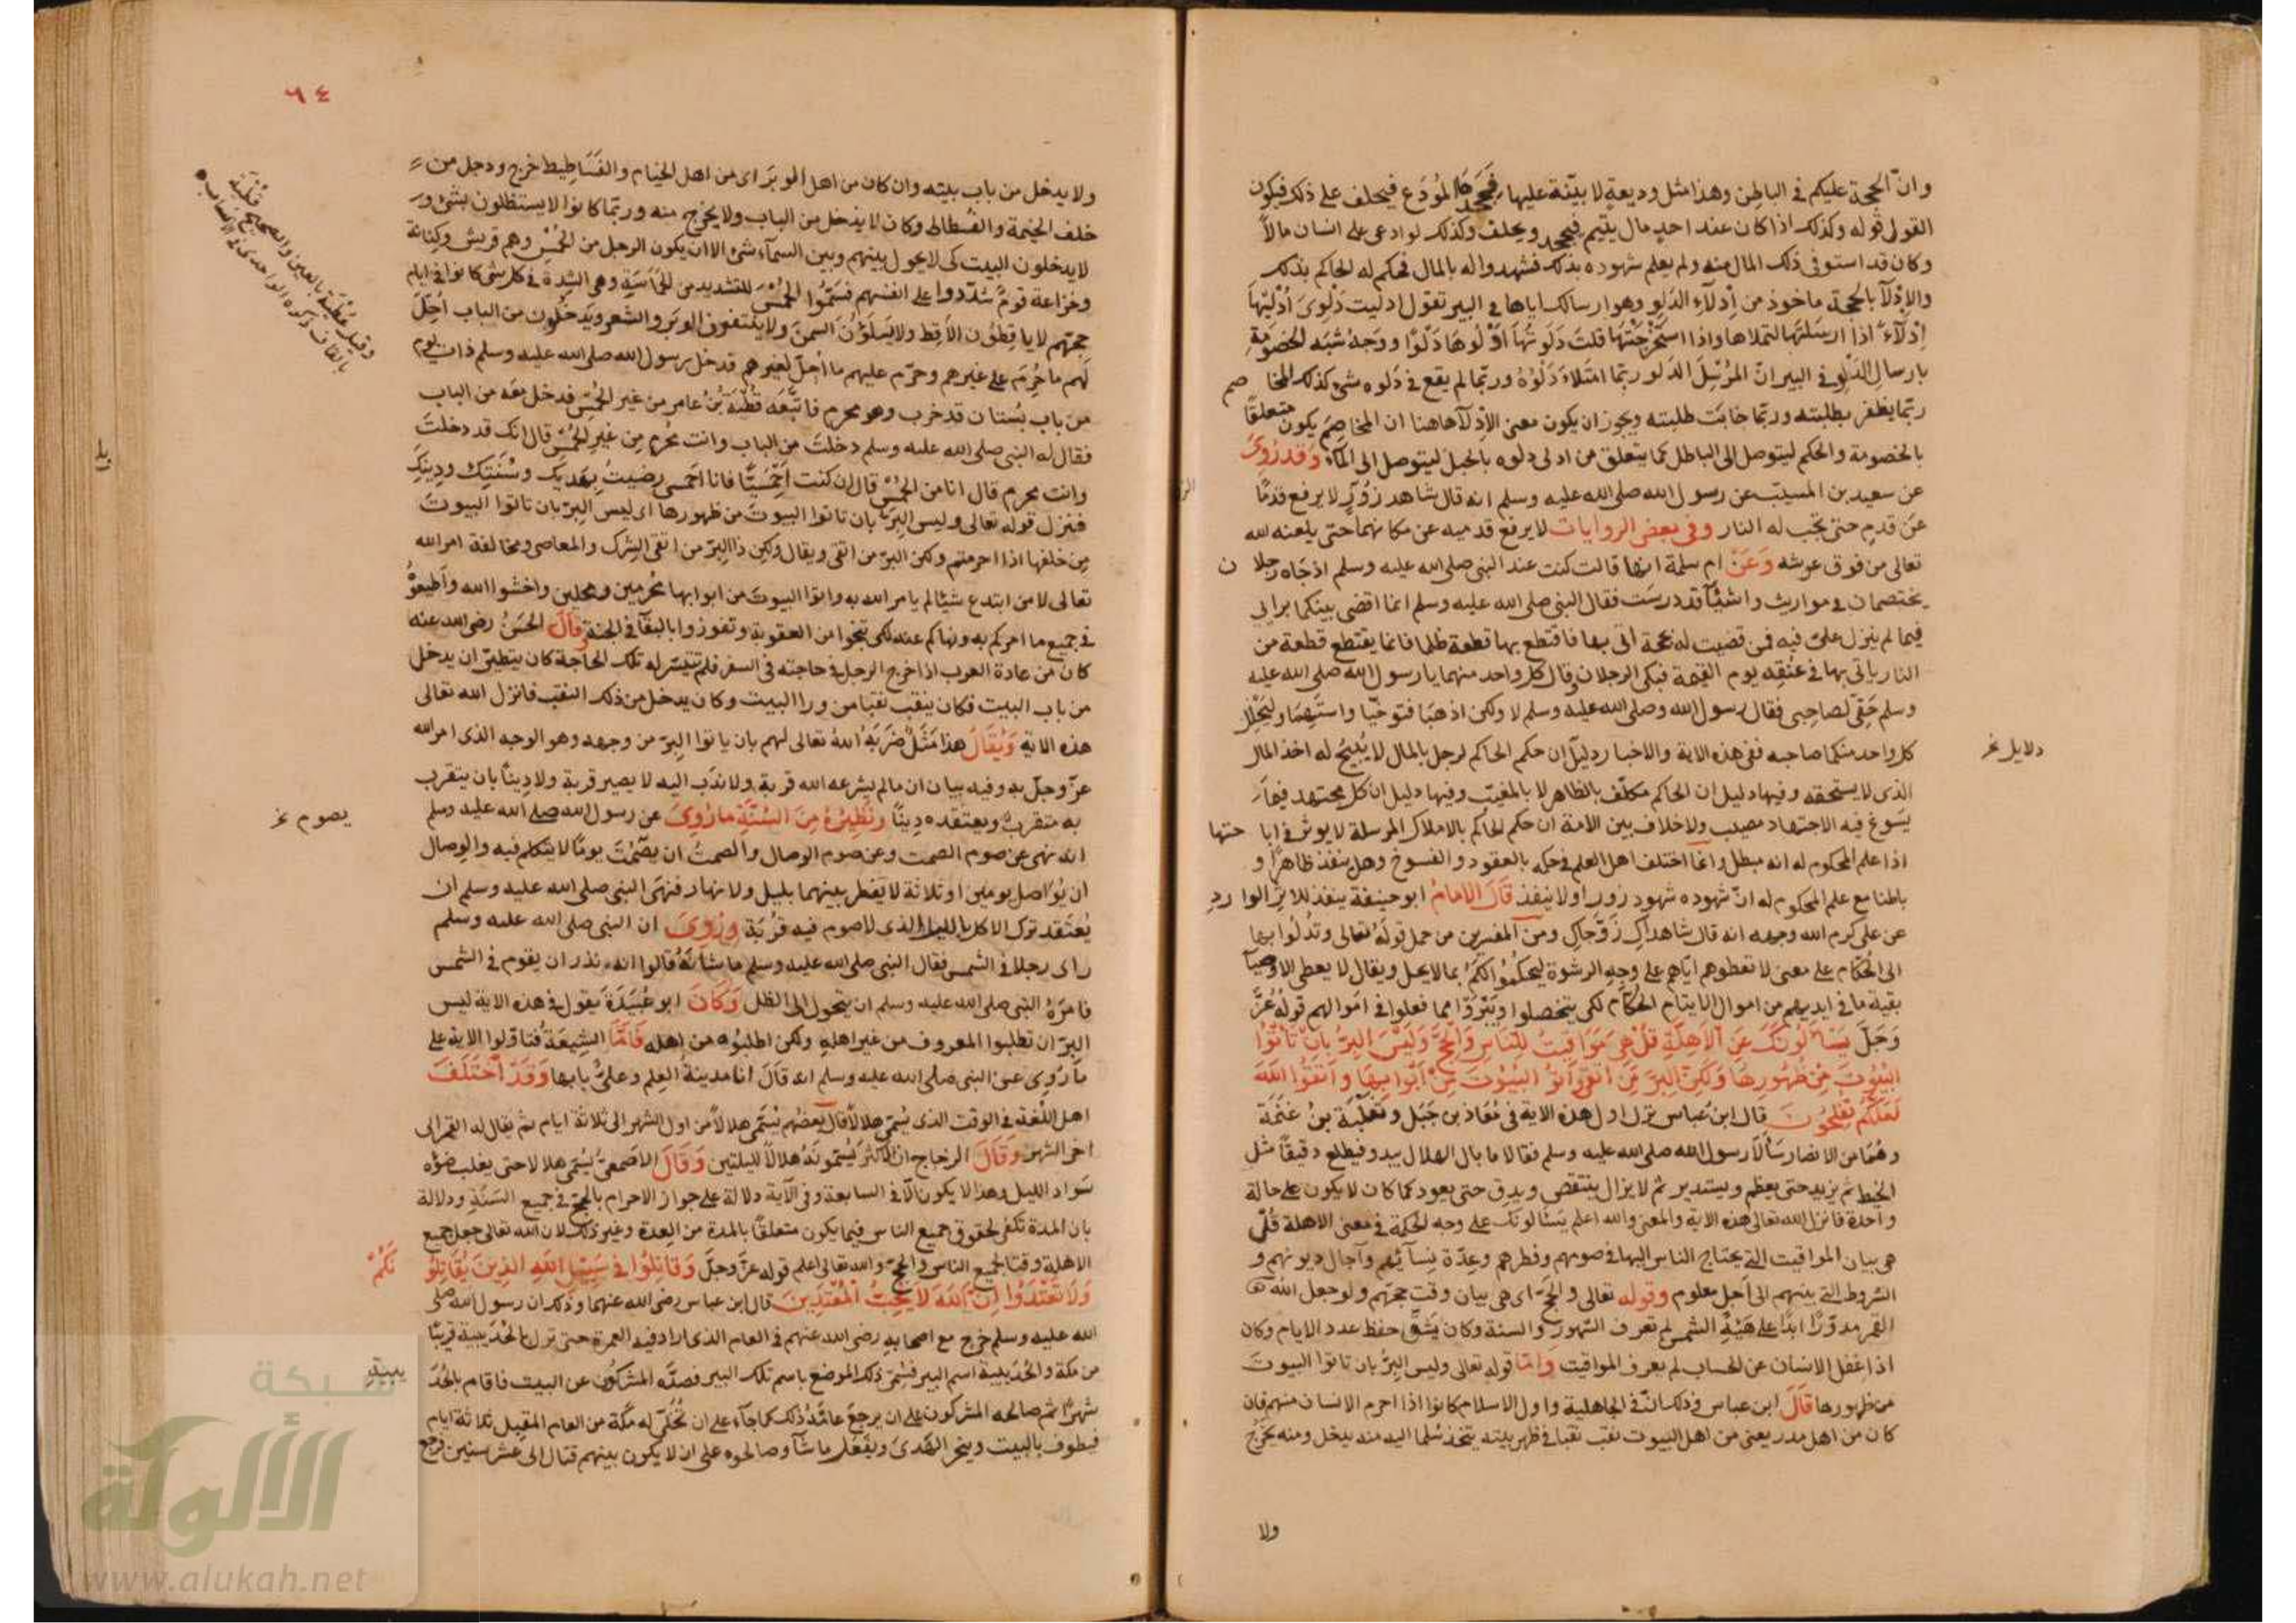 وانّ الحجة عليكم في الباطن وهذا مثل وديعةٍ لا بيّنة عليها فجحدها المُودَع فيحلف على ذلك فيكون
القول قوله وكذلك اذا كان عند احدٍ مال يتيم فيجحد ويحلف وكذلك لو ادعى على انسان مالاً
وكان قد استوفى ذلك المال منه ولم يعلم شهوده بذلك فشهدوا له بالمال فحكم له الحاكم بذلك
والادْلآ بالحجة ماخوذ من اِدْلآءِ الدَلو وهو ارسالك اياها في البير تقول ادليت دَلْوِىَ اُدْليّها
اِدْلآءً اذا ارسَلتَها لتملاها واذا استخرَجْتَهَا قلتَ دَلَوتُهَا اَدْلُوهَا دَلْوًا ووَجهُ شبَه الخصُومَةِ
بارسال الدَلْوِ في البير انّ المرُسِلَ الدَلو ربّما امتَلاءَ دَلْوُهُ وربّما لم يقع في دَلوه شئ كذلك المخاصم
ربّما يظفر بطلبته وربّما خابَت طلبته ويجوز ان يكون معنى الاِدْلآ هاهنا ان المخاصِمَ يكون متعلقًا
بالخصومة والحكم ليتوصل الى الباطل كما يتعلق من ادلى دلوه بالحبل ليتوصل الى المآء وَقَد رُوِىَ
عن سعيد بن المسيّب عن رسول الله صلى الله عليه وسلم انه قال شاهد زُوْرٍ لا يرفع قدمًا
عَن قدمٍ حتى تجب له النار وفي بعض الروايات لا يرفع قدميه عن مكانهما حتى يلعنه الله
تعالى من فوق عرشه وَعَنْ ام سلمة انها قالت كنت عند النبي صلى الله عليه وسلم اذ جَاه رجلان
يختصمان في مواريث واشيآ قد درسَت فقال النبي صلى الله عليه وسلم انما اقضى بينكما برايى
فيما لم ينزل علىّ فيه فمن قضيت له بحجة اتى بها فاقتطع بها قطعة ظلما فانما يقتطع قطعة من
النار ياتى بها في عنقه يوم القيمة فبكى الرجلان وقال كل واحد منهما يا رسول الله صلى الله عليه
وسلم حَقّى لصاحبى فقال رسول الله وصلى الله عليه وسلم لا ولكن اذهبَا فتوخّيا واستَهِمَا وليُحَلِل
كل واحد منكما صاحبه ففى هذه الاية والاخبار دليل ان حكم الحاكم لرجل بالمال لا يُبيحُ له اخذ المال
دلايل نخ
الذى لا يستحقه وفيها دليل ان الحاكم مكلّف بالظاهر لا بالمغيّب وفيها دليل ان كل مجتهد فيما
يسُوغ فيه الاجتهاد مصيب ولا خلاف بين الامة ان حكم الحاكم بالاملاك المرسلة لا يوثر في اباحتها
اذا علم المحكوم له انه مبطل وانما اختلف اهل العلم في حكمه بالعقود والفسوخ وهل ينفذ ظاهرًا و
باطنا مع علم المحكوم له انّ شهوده شهود زور او لا ينفذ قَالَ الامامُ ابو حنيفة ينفذ للاثر الوارد
عن على كرم الله وجهه انه قال شاهداكِ زَوَّجَاكِ ومن المفسرين من حمل قولهُ تعالى وتُدْلُوا بها
الى الحُكّام على معنى لا تعطوهم ايّاهم على وجهِ الرشوة ليحكُمُوا لكمُ بما لا يحل ويقال لا يعطى الاوصيآ
بقية ما فى ايديهم من اموال الايتام الحُكّام لكى يتخصلوا ويَتْرَوّا مما فعلوا في اموالهم قولهُ عَزَّ
وَجَلَّ يَسْألُونَكَ عَنِ الْاَهِلَّةِ قُلْ هِىَ مَوَاقيتُ لِلنَّاسِ وَالْحَجِّ وَلَيْسَ البِرُّ بِانْ تَاْتُوا
البُيُوتَ مِنْ ظهُورِهَا وَلَكِنَّ البِرَّ مَنِ اتَّقَى وَأتُوا البُيُوْتَ مِنْ اَبْوَابِهَا وَاتَّقُوا اللهَ
لَعَلَّكُمْ تُفْلِحُونَ قال ابن عباس نزل اول هذه الاية في مُعَاذ بن جَبَل وثعْلَبَة بنُ غنَمَة
وهُمَا من الانصار سَألاَ رسول الله صلى الله عليه وسلم فقالا ما بال الهلال يبدو فيطلع دقيقًا مثل
الخيط ثم يزيد حتى يعظم ويستدير ثم لا يزال ينتقص ويدِق حتى يعود كما كان لا يكون على حالة
واحدة فانزل الله تعالى هذه الاية والمعنى والله اعلم يَسْالونكَ على وجه الحكمة في معنى الاهلة قُلْ
هي بيان المواقيت التى يحتاج الناس اليها في صومهم وفطرهم وعِدّة نسآئِهم وآجال ديونهم و
الشروط التى بينهم الى اَجلٍ معلوم وقوله تعالى والحَجّ اى هي بيان وقت حجّهم ولو جعل الله
القمر مدوّرًا ابدًا على هَيئةِ الشمس لم تعرف الشهورَ والسنة وكان يَشقُّ حفظ عدد الايام وكان
اذا غفل الانسان عن الحساب لم يعرف المواقيت وامّا قوله تعالى وليس البِرُّ بان تاتوا البيوتَ
من ظهورها قَالَ ابن عباس وذلك انّ في الجاهلية واول الاسلام كانوا اذا احرم الانسان منهم فان
كان من اهل مدر يعنى من اهل البيوت نقب نقبا في ظهر بيته يتخذ سُلما اليه منه يدخل ومنه يخرُجُ
ولا
٦٤
ولا يدخل من باب بيته وان كان من اهل الوبَر اى من اهل الخيام والفَسَاطِيط خرج ودخل من
خلف الخيمة والفسْطاط وكان لا يدْخل من الباب ولا يخرج منه وربّما كانوا لا يستظلون بشئ و
لا يدخلون البيت كى لا يحول بينهم وبين السمآء شئ الا ان يكون الرجل من الحُمْسِ وهم قريش وكِنانة
وخزاعة قومٌ شدّدوا على انفسهم فسَمّوُا الحُمْسَ للتشديد من الحَمَاسَةِ وهى الشدة في كل شئ كانوا في ايام
حجّهم لا ياقِطوُن الاَقِط ولا يَسلَوْنَ السمنَ ولا يلتفون الوَبَر والشعر ويدخلون من الباب اُحِلّ
لَهم ما حُرِمَ على غيرهم وحرّم عليهم ما اُحِلّ لغيرهم قد دخل رسول الله صلى الله عليه وسلم ذات يوم
من باب بُستان قد خرب وهو محرم فاتّبَعَه قُطْبَةُ بْنُ عامر من غير الحُمْسِ فدخل معَه من الباب
قُلْبَة
وقيل عُطْبَة بالعين والصحيح قُطْبَة
بالقاف ذكره الواحدى في الاسباب
فقال له النبى صلى الله عليه وسلم دخلتَ من الباب وانت مُحْرم مِن غيرِ الحُمْسِ قال انك قد دخلتَ
وانت محرم قال انا من الحُمْسِ قال ان كنت اَحْمَسِيًّا فانا احْمَسِى رضيتُ بِهَديك وسُنَتِك ودِينِكَ
فنزل قوله تعالى وليس البِرّ بان تاتوا البيوتَ من ظهورها اى ليس البِرّ بان تاتوا البيوتَ
مِن خلفها اذا احرمتم ولكن البرّ من اتقى ويقال ولكن ذا البِرّ من اتقى الشرك والمعاصى ومخالفة امر الله
تعالى لا من ابتدع شيئا لم يامر الله به واتوا البيوتَ من ابوابها مُحْرمين ومحلين واخشوا الله واَطيعوُ
في جميع ما امركم به ونهاكم عنه لكى تنجوا من العقوبة وتفوزوا بالبقآ في الجنة قالَ الحَسَنُ رضى الله عنه
كان من عادة العرب اذا خرج الرجل في حاجته في السفر فلم تتيسّر له تلك الحاجة كان يتطيرّ ان يدخل
من باب البيت فكان ينقب نقبا من ورا البيت وكان يدخل من ذلك النقب فانزل الله تعالى
هذه الاية وَيُقَالُ هذا مَثَلٌ ضَرَبَهُ اللهُ تعالى لهم بان ياتوا البِرّ من وجهه وهو الوجه الذى امر الله
عزّ وجلّ به وفيه بيان ان ما لم يشرعه الله قربة ولا ندَب اليه لا يصير قربة ولا دِينًا بان يتقرب
به متقرب ويعتقده دِينًا ونَظِيرُهُ مِنَ السُنَّةِ ما رُوِىَ عن رسول الله صلى الله عليه وسلم
انه نهى عن صوم الصمت وعن صوم الوصال والصمتُ ان يصْمُتَ يومًا لا يتكلم فيه والوِصال
يصوم نخ
ان يُوَاصل يومين او ثلاثة لا يَفطر بينهما بليل ولا نهار فنهَى النبى صلى الله عليه وسلم ان
يُعتَقَد ترك الاكل بالليل الذى لا صوم فيه قرْبَة وَرُوِىَ ان النبى صلى الله عليه وسلم
راى رجلا في الشمس فقال النبى صلى الله عليه وسلم ما شأنهُ قالوا انه نذر ان يقوم في الشمس
فامرَهُ النبى صلى الله عليه وسلم ان يتحول الى الظل وَكَانَ ابو عُبَيْدَة يقول في هذه الاية ليس
البرّ ان تطلبوا المعروف من غير اهلهِ ولكن اطلبُوه من اهله فَامَّا الشِيعَةُ فتاوّلوا الاية على
ما رُوِى عن النبى صلى الله عليه وسلم انه قَالَ انا مدينة العِلم وعلىٌّ بابها وَقَدْ اخْتَلَفَ
اهل اللُغة في الوقت الذى يُسَمّى هلالاً قال بعضُهم يُسَمّى هلالاً من اول الشهر الى ثلاثة ايام ثم يقال له القمر الى
اخر الشهر وَقَالَ الزجاج ان الاكثر يُسَمونَهُ هلالاً لليلتين وَقَالَ الاصَمعىُّ يُسَمى هلالا حتى يغلب ضوْه
سَواد الليل وهذا لا يكون الاّ في السابعة وفي الآية دلالة على جواز الاحرام بالحج في جميع السَنَةِ ودلالة
بان المدة تكفى لحقوق جميع الناس فيما يكون متعلقًا بالمدة من العِدة وغير ذلك لان الله تعالى جعل جميع
الاهلة وقتا لجميع الناس والحجّ والله تعالى اعلم قوله عزّ وجلَّ وَقَاتِلُوا في سَبِيْلِ اللهِ الذِينَ يُقَاتِلُونَكمُ
وَلاَ تَعْتَدُوا اِنَّ اللهَ لاَ يُحِبُّ المُعْتَدِيْنَ قال ابن عباس رضى الله عنهما وذلك ان رسول الله صلى
الله عليه وسلم خرج مع اصحابه رضى الله عنهم في العام الذى اراد فيه العمرة حتى نزل الحُدَيبية قريبًا
من مكة والحُدَيبية اسم البير فسُمّى ذلك الموضع باسم تلك البير فصدّه المشركون عن البيت فاقام بالحُدَيبيةِ
شهرًا ثم صالحه المشركون على ان يرجعَ عامَهُ ذلك كما جآء على ان تُخلّى له مكّة من العام المقبِل ثلاثة ايام
فيطوف بالبيت وينحر الهَدْىَ ويفعَل ما شآ وصالحوه على ان لا يكون بينهم قتال الى عشر سنين فرجع
شبكة
الألوكة
www.alukah.net